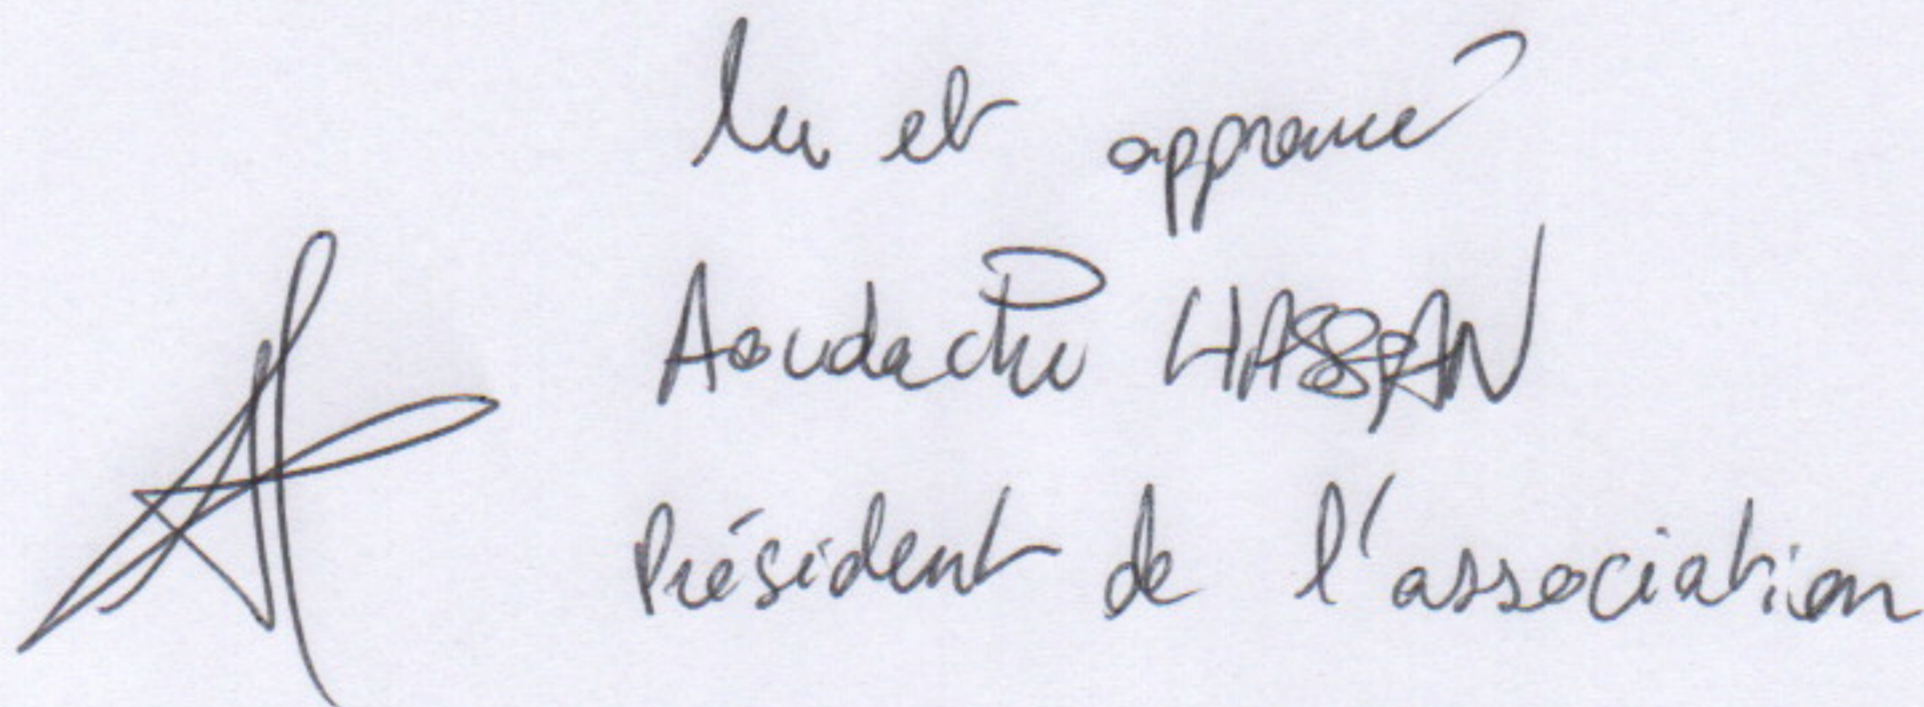 lu et approuvé
Aoudachi HASSAN
Président de l'association